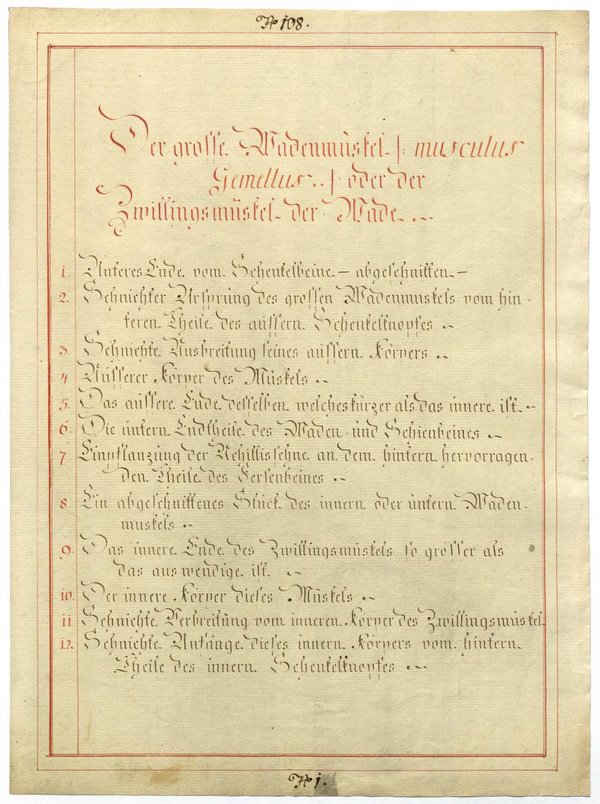 No 108.
Der grosse Wadenmuskel /: musculus
Gemellus :/ oder der
Zwillingsmuskel der Wade.
1. Unteres Ende vom Schenkelbeine – abgeschnitten –
2. Sehnichter Ursprung des grossen Wadenmuskels vom hin-
teren Theile des äussern Schenkelknopfes
3. Sehnichte Ausbreitung seines äussern Körpers
4. Äusserer Körper des Muskels
5. Das äussere Ende desselben welches kürzer als das innere ist.
6. Die untern Endtheile des Waden und Schienbeines
7. Einpflanzung der Achillissehne an dem hintern hervorragen-
den Theile des Fersenbeines
8. Ein abgeschnittenes Stück des innern oder untern Waden-
muskels
9. Das innere Ende des Zwillingsmuskels so grösser als
das auswendige ist.
10. Der innere Körper dieses Muskels
11. Sehnichte Verbreitung vom inneren Körper des Zwillingsmuskel.
12. Sehnichte Anfänge dieses innern Körpers vom hintern
Theile des innern Schenkelknopfes
No 1.